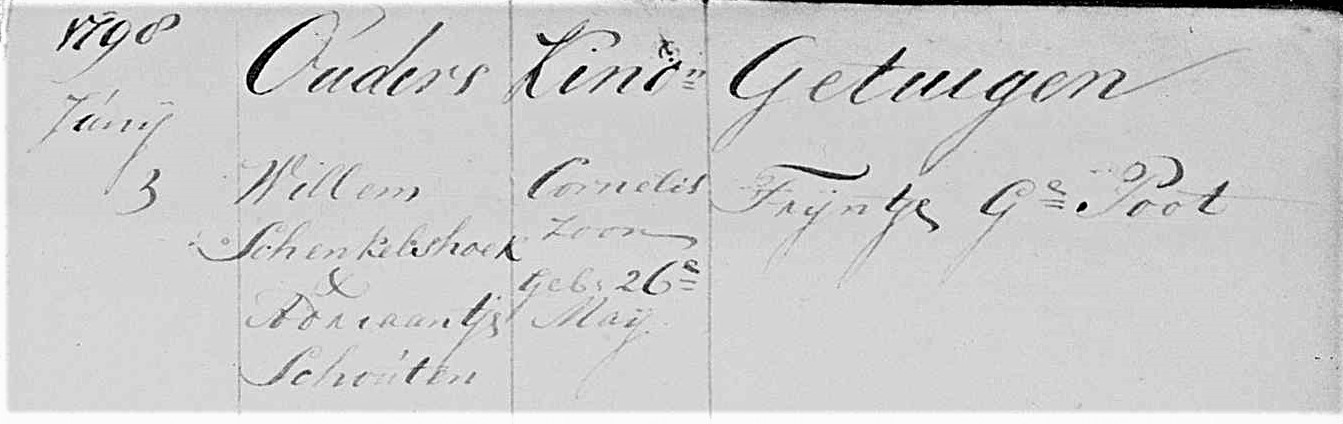 1798 Ouders Kindn Getuigen
Junij
3 Willem Cornelis Trijntje Ge Poot
Schenkelshoek Zoon
& gebs 26e
Adriaantje Maij
Schouten